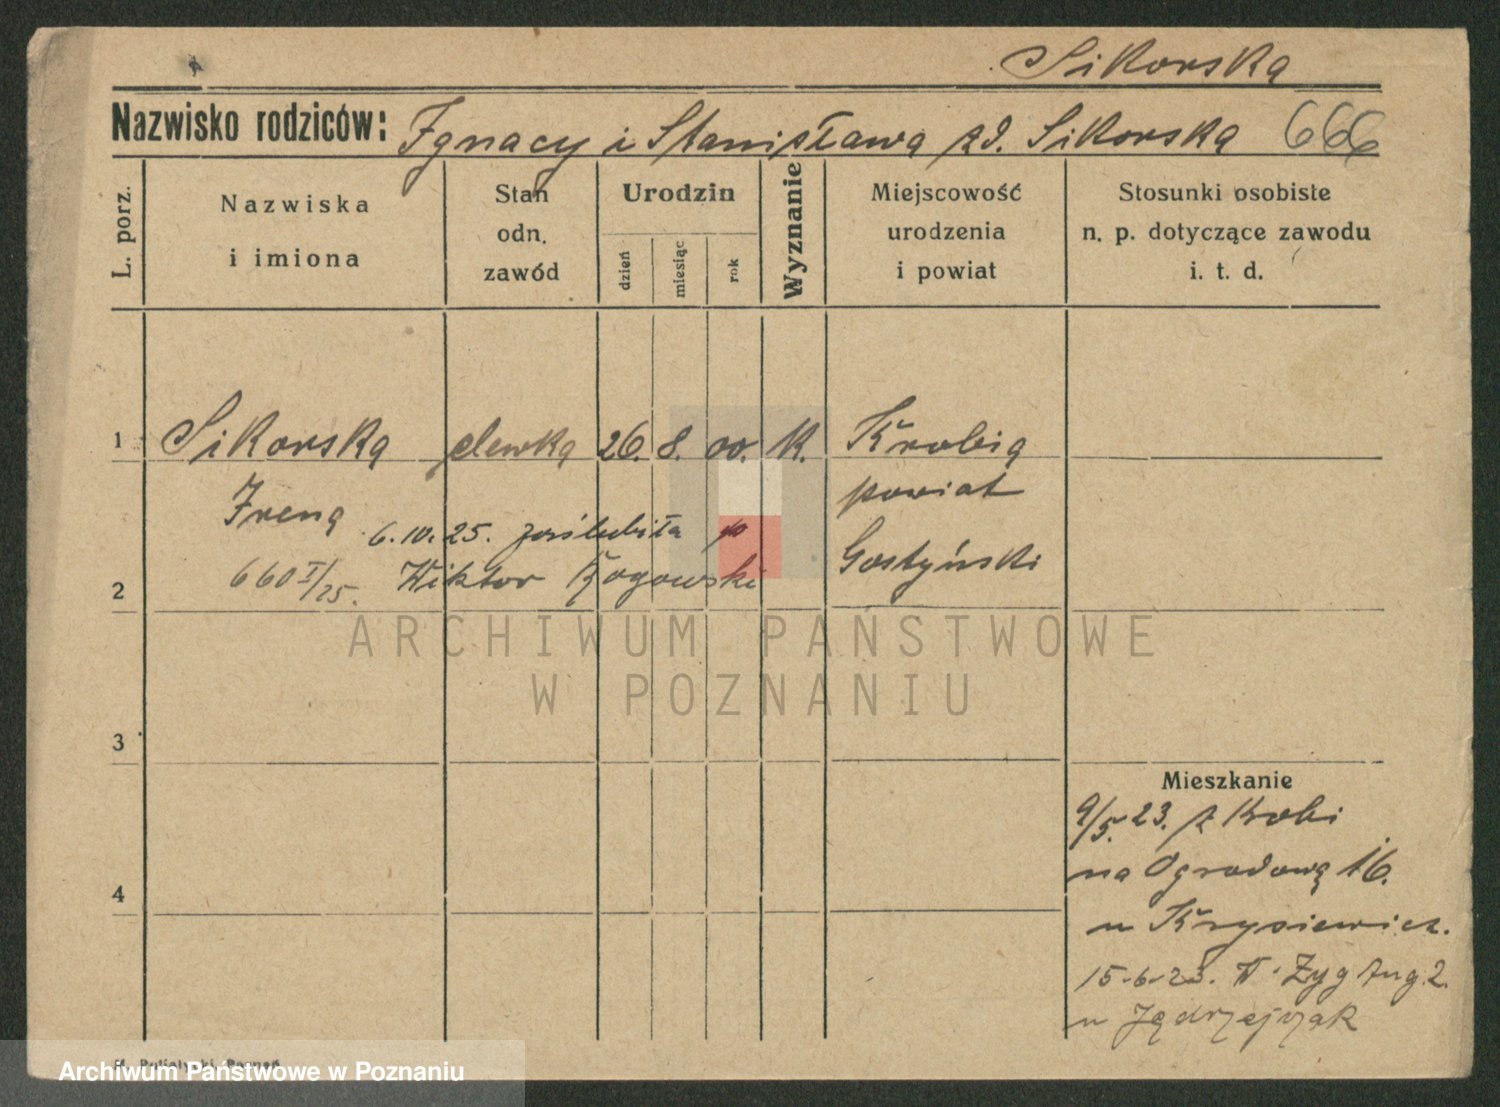 Sikorska
Nazwisko rodziców: Ignacy i Stanisława zd. Sikorska 666
L. porz.
Nazwiska
i imiona
Stan
odn.
zawód
Urodzin
dzień
miesiąc
rok
Wyznanie
Miejscowość
urodzenia
i powiat
Stosunki osobiste
n. p. dotyczące zawodu
i. t. d.
1 Sikorska 26. 8. 00. K. Krobia
Irena powiat
6.10.25. zaślubiła p
Gostyński
2 660 I/25. Wiktor
ARCHIWUM PAŃSTWOWE
W POZNANIU
3
Mieszkanie
9/5.23. z Krobi
4 na Ogrodową 16.
u Krysiewicz.
15-6-23. W. Zyg Aug. 2.
u Jędrzejczak
Archiwum Państwowe w Poznaniu